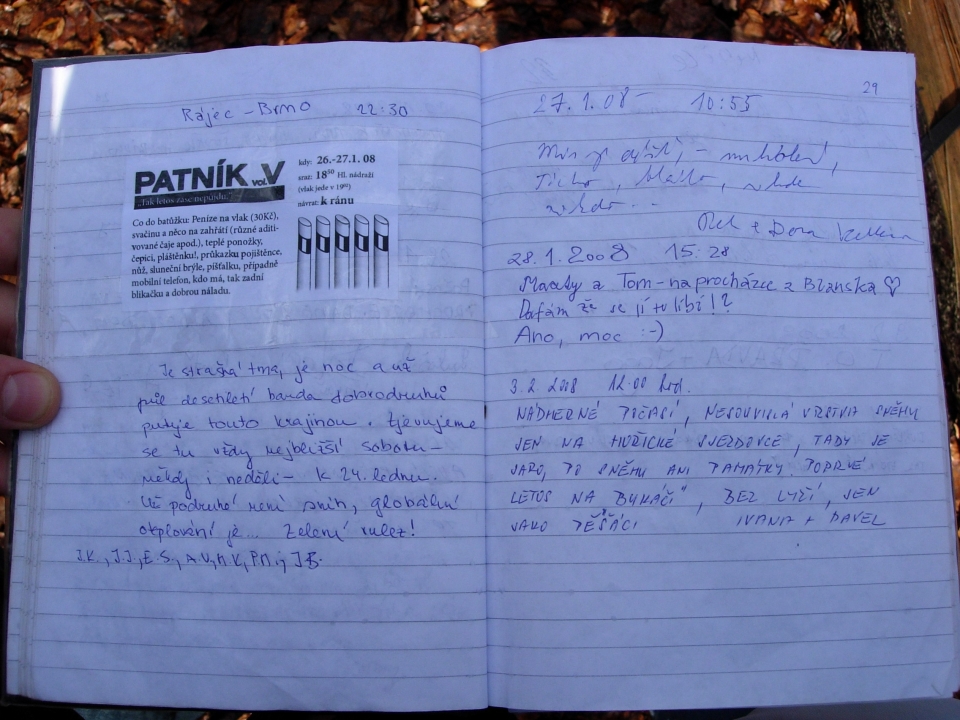 Rájec - Brno 22:30
PATNÍK vol. V
"Tak letos zase nepůjdu."
kdy: 26.-27.1. 08
sraz: 18⁵⁰ Hl. nádraží
(vlak jede v 19⁰⁰)
návrat: k ránu
Co do batůžku: Peníze na vlak (30Kč),
svačinu a něco na zahřátí (různé aditi-
vované čaje apod.), teplé ponožky,
čepici, pláštěnku!, průkazku pojištěnce,
nůž, sluneční brýle, píšťalku, případně
mobilní telefon, kdo má, tak zadní
blikačku a dobrou náladu.
Je strašná tma, je noc a už
půl desetletí banda dobrodruhů
putuje touto krajinou. Zjevujeme
se tu vždy nejbližší sobotu -
někdy i neděli - k 24. lednu.
Už podruhé není sníh, globální
oteplování je... Zelení rulez!
J.K., J.J., E.S., A.V., M.K, P.M.,
29
27.1.08 - 10:55
Ticho, bláto,
28.1.2008 15:28
a Tom - na procházce z Blanska ♡
Doufám že se jí tu líbí!?
Ano, moc :-)
3.2.2008 12.00 hod.
NÁDHERNÉ POČASÍ, NESOUVISLÁ VRSTVA SNĚHU
JEN NA HOŘICKÉ SJEZDOVCE, TADY JE
JARO, PO SNĚHU ANI PAMÁTKY. POPRVÉ
LETOS NA "BÝKÁČI", BEZ LYŽÍ, JEN
JAKO PĚŠÁCI IVANA + PAVEL